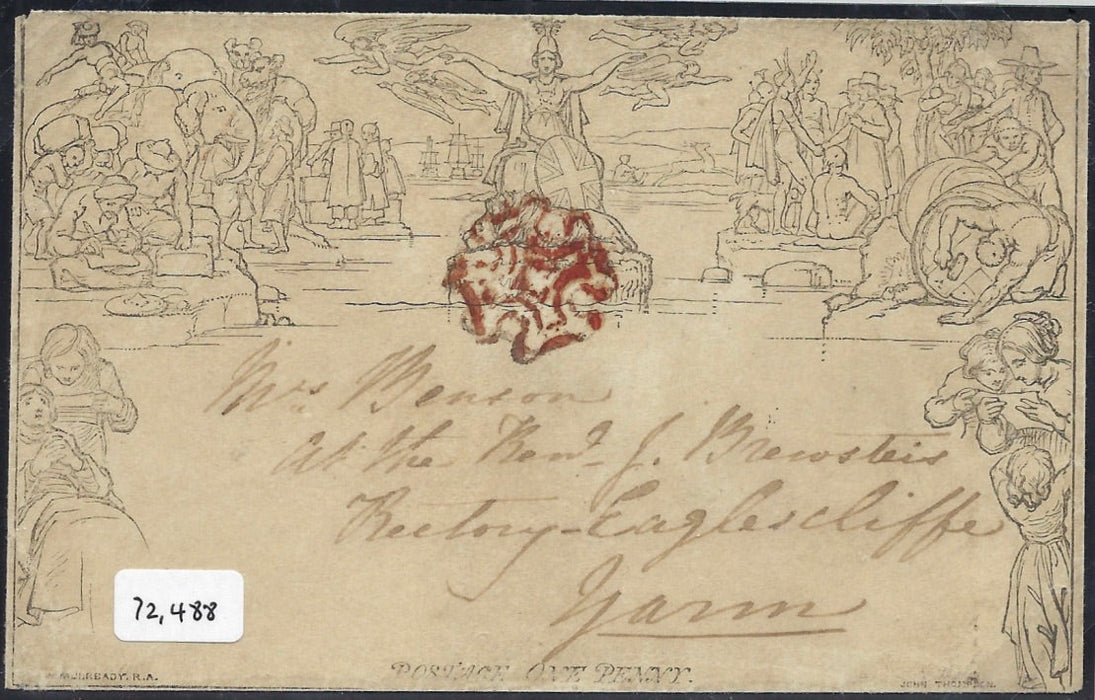 Mrs Benson
At the Revd. J. Brewsters
Rectory-Eaglescliffe
Yarm
72,488
POSTAGE ONE PENNY.
MULREADY. R.A.
JOHN THOMPSON.